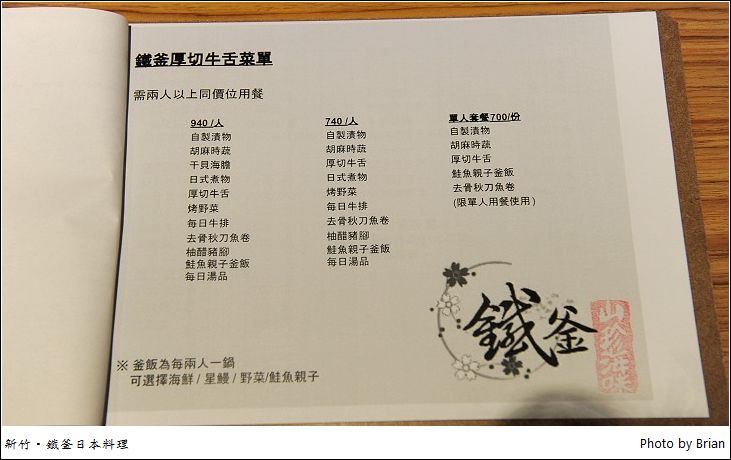 鐵釜厚切牛舌菜單
需兩人以上同價位用餐
940 /人
自製漬物
胡麻時蔬
干貝海膽
日式煮物
厚切牛舌
烤野菜
每日牛排
去骨秋刀魚卷
柚醋豬腳
鮭魚親子釜飯
每日湯品
740 /人
自製漬物
胡麻時蔬
厚切牛舌
日式煮物
烤野菜
每日牛排
去骨秋刀魚卷
柚醋豬腳
鮭魚親子釜飯
每日湯品
單人套餐700/份
自製漬物
胡麻時蔬
厚切牛舌
鮭魚親子釜飯
去骨秋刀魚卷
(限單人用餐使用)
鐵釜
山珍海味
※ 釜飯為每兩人一鍋
可選擇海鮮 / 星鰻 / 野菜/鮭魚親子
新竹‧鐵釜日本料理
Photo by Brian